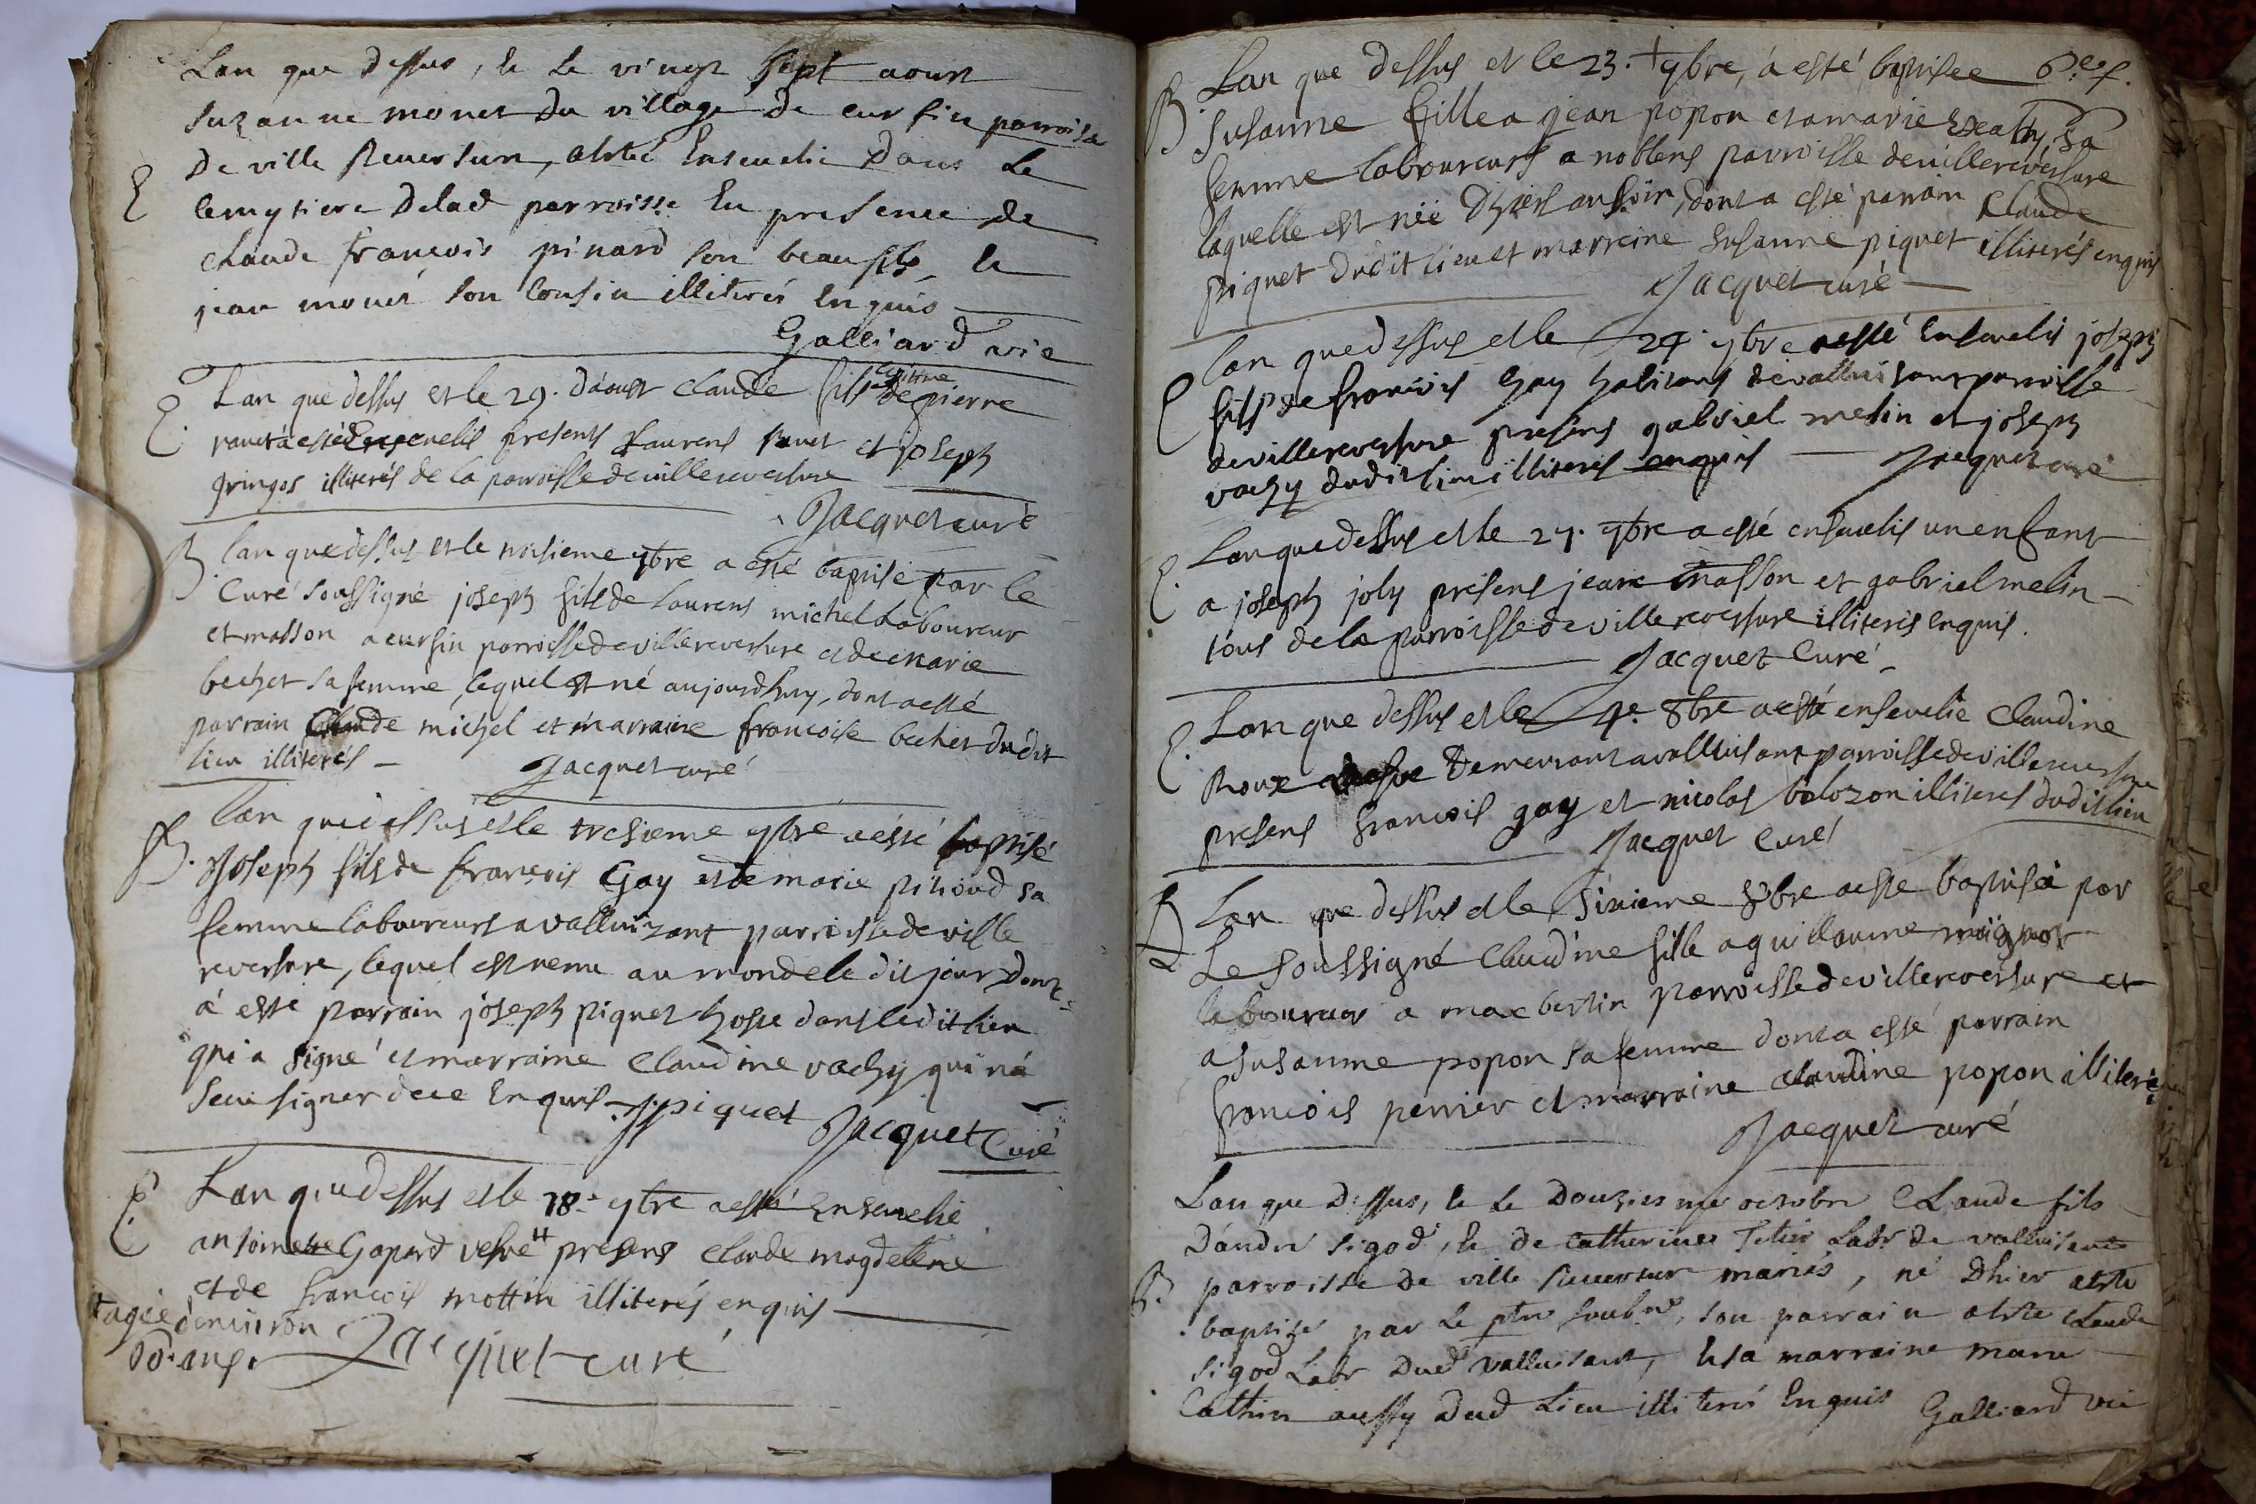 Lan que dessus, & le vingt sept aoust
suzanne monet du village de cursin parroisse
E
de ville Reversure, a este Ensevelie dans Le
cemytiere delad parroisse En presence de
claude françois pinard son beaufils &
jean monet son Cousin illiterés Enquis
Galliard vic
E.
Lan que dessus et le 29. d'aoust claude fils legitime de pierre
a esté Ensevelis presents Laurens et joseph
gringos illiterés de la parroisse de villereversure
Jacquet curé
B.
lan que dessus et le troisieme 9bre a esté baptisé par le
Curé soussigné joseph fils de Laurens michel Laboureur
et masson a cursin parroisse de villereversure et de marie
bechet sa femme, lequel est né aujourdhuy, dont a esté
parrain Claude michel et marraine francoise bechet dudit
lieu illiterés
Jacquet curé
B.
Lan que dessus et le tresieme 9bre a esté baptisé
Joseph fils de françois Gay et de marie pitioud sa
femme laboureurs a valluizant parroisse de ville
reversure, lequel est venu au monde le dit jour dont
a esté parrain joseph piquet hoste dans ledit lieu
qui a signé et marraine Claudine vachy qui n'a
sceu signer de ce Enquis J piquet
Jacquet Curé
E.
Lan que dessus et le 18e 9bre a esté Ensevelie
antoinette Gapard vefve presens claude magdelene
et de francois mottin illiterés enquis
agée d'environ
60. ans.
Jacquet curé
B
Lan que dessus et le 23. 9bre, a esté baptisée
Susanne fille a jean popon et a marie sa
femme laboureurs a noblens parroisse de villereversure
laquelle est née d'hier au soir, dont a esté parrain Claude
piquet dudit lieu et marreine Susanne piquet illiterés enquis
Jacquet curé
E
lan que dessus et le 24. 9bre a esté Ensevelis joseph
fils de francois Gay habitant de valluisant parroisse
de villereversure presens gabriel melin et joseph
vachy dudit lieu illiterés enquis
Jacquet curé
E.
Lan que dessus et le 27. 9bre a esté ensevelis un enfant
a joseph joly presens jean masson et gabriel melin
tous de la parroisse de villereversure illiterés enquis.
Jacquet Curé
E.
Lan que dessus et le 4e 8bre a esté ensevelie Claudine
Roux vefve demeurant a valluisant parroisse de villereversure
presens francois gay et nicolas bolozon illiteres dudit lieu
Jacquet Curé
B
Lan que dessus et le sixieme 8bre a esté baptisée par
Le soussigné Claudine fille a guillaume
laboureur a parroisse de villereversure et
a susanne popon sa femme dont a esté parrain
francois perrier et marraine claudine popon illiterés
Jacquet curé
Lan que dessus, & le Douziesme octobre CLaude fils
D'andre sigod, & de Catherine Labr de valluisant
B.
parroisse de ville Reversure mariés, né Dhier a este
baptisé par Le ptre soubné, son parrain a este claude
sigod Labr Dud valluisant, & sa marraine marie
Cathin aussy Dud Lieu illiterés Enquis Galliard vic